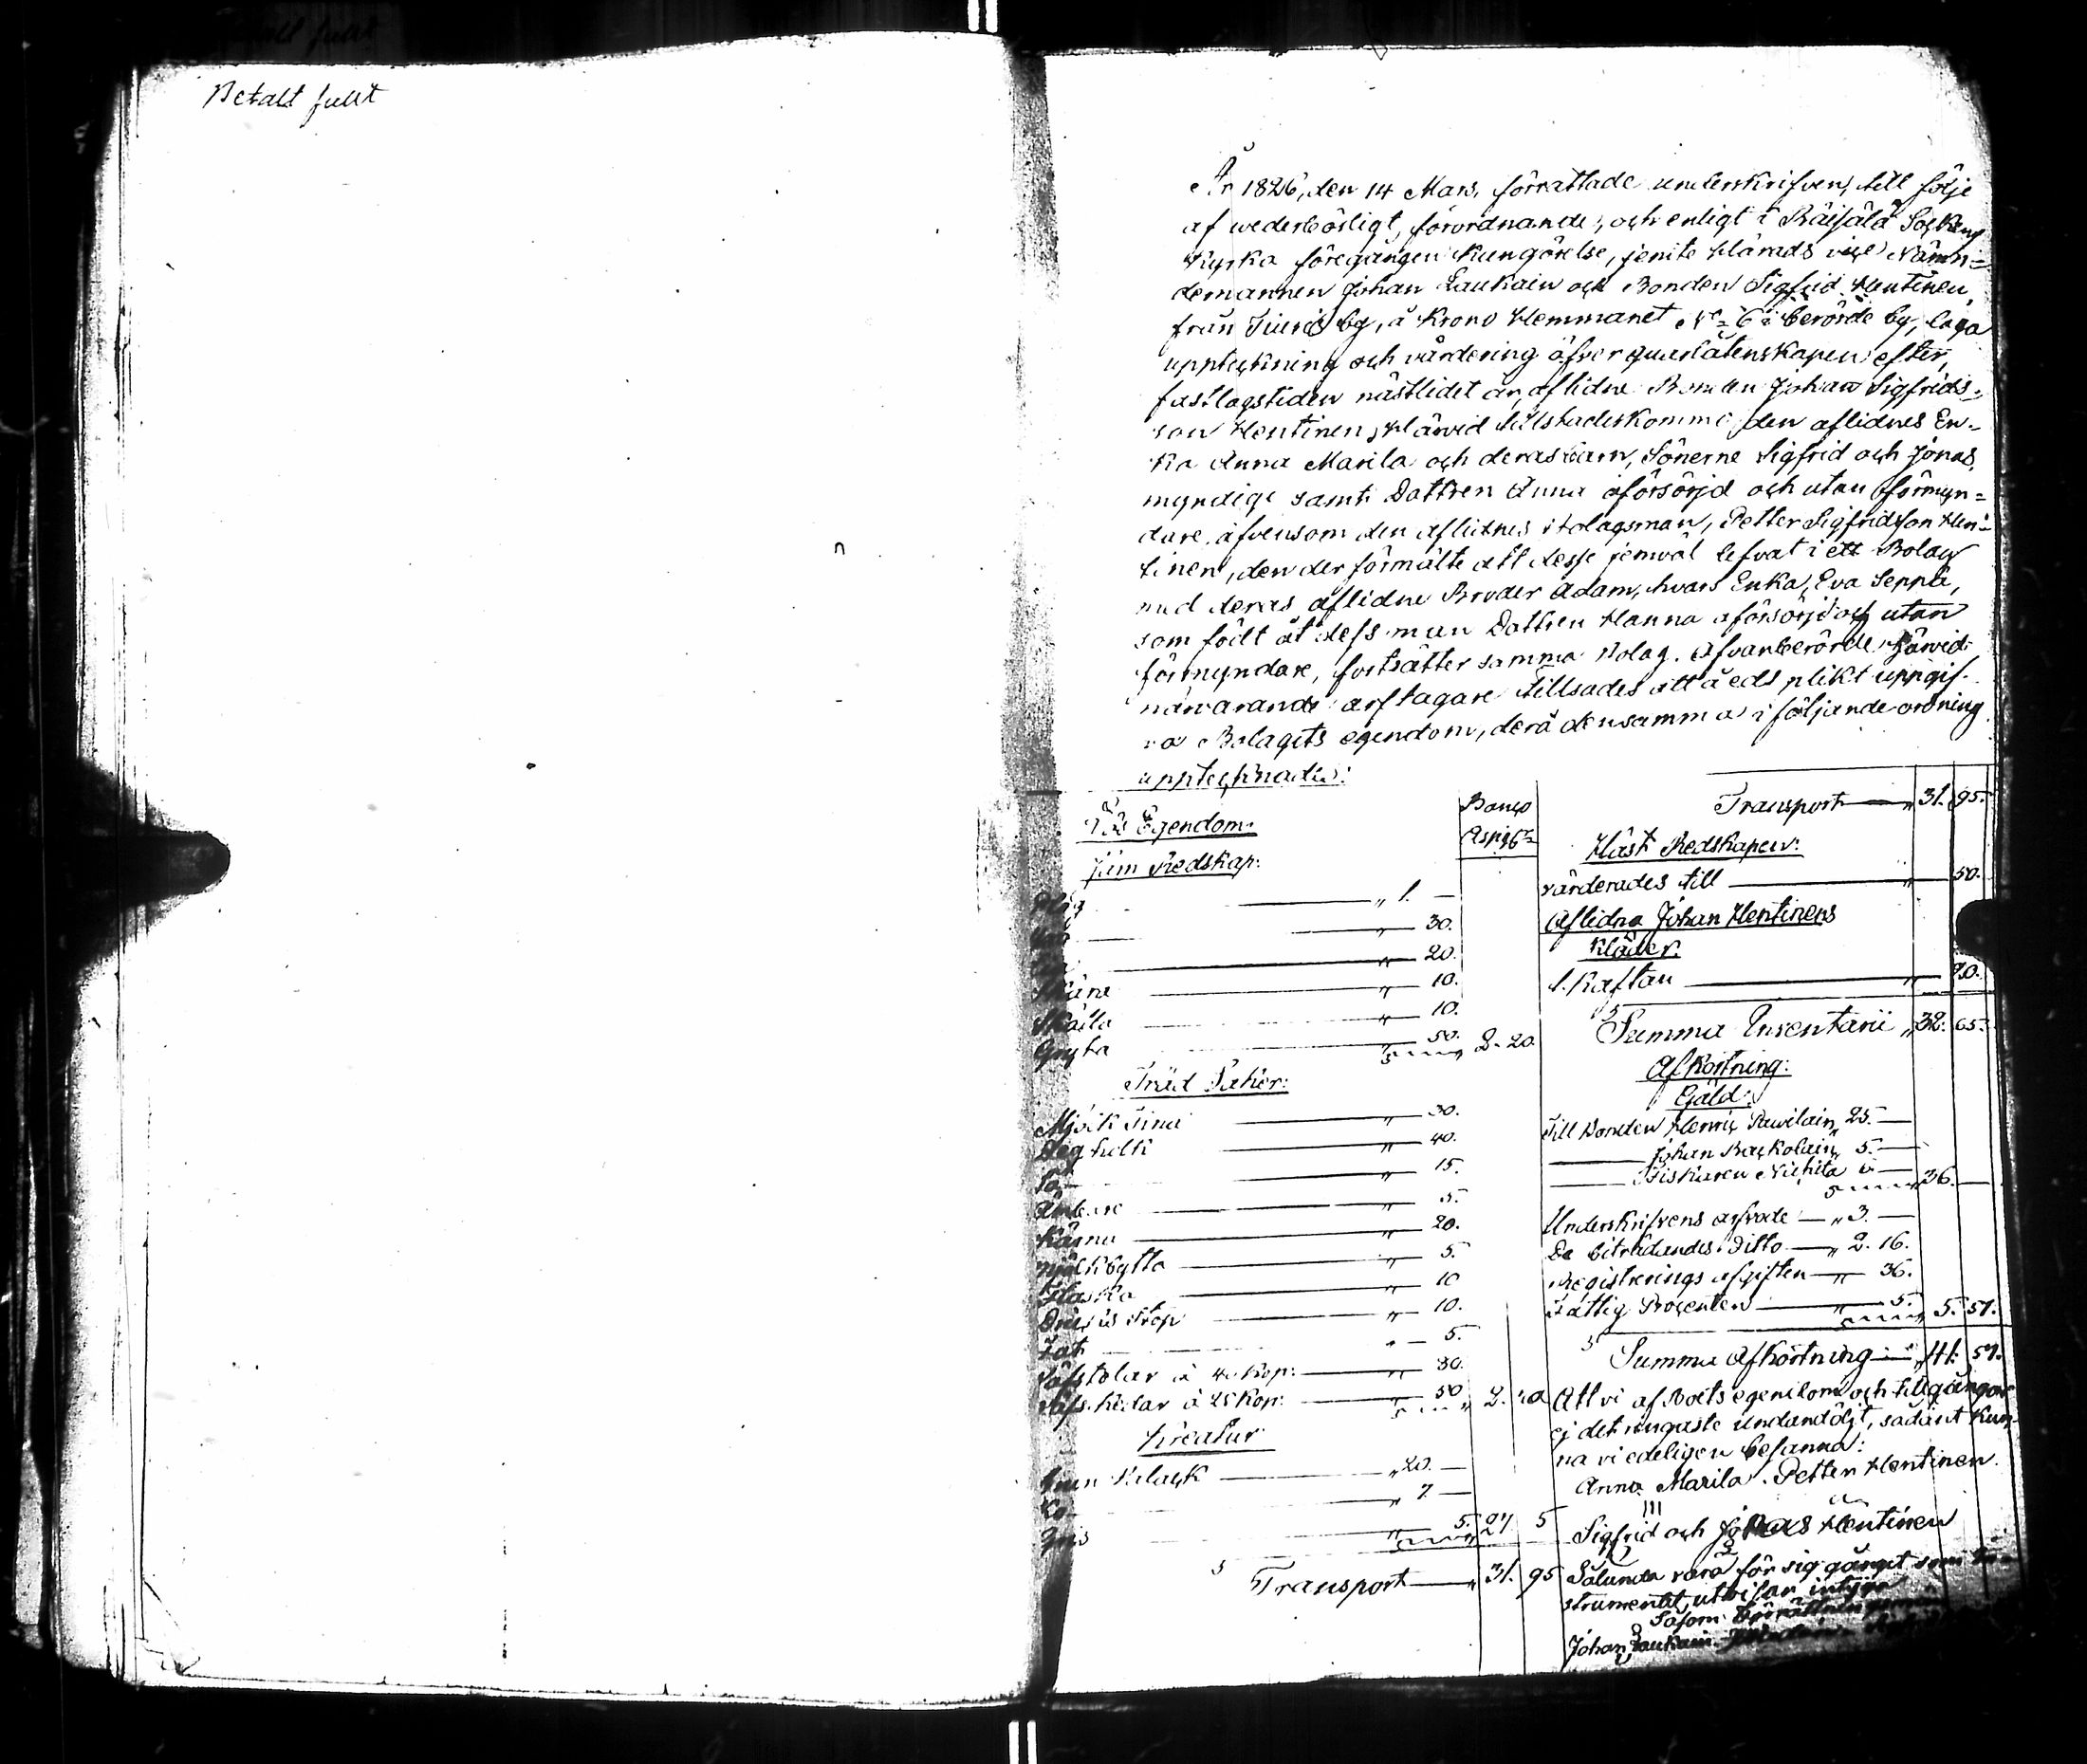 Betalt fullt
År 1826, den 14 Mars, förrättade underskrifven, till följe
af wederbörligt, förordnande, och enligt i Räisälä Sockens
Kyrka föregången kungörelse, jemte Härads vice Nämn=
demannen Johan Laukain och Bonden Sigfrid Hentinen,
från by, å Krono Hemmanet N° 6 i berörde by, laga
uppteckning och värdering öfver quarlåtenskapen efter,
fastlagstiden nästlidet år, aflidne Bonden Johan Sigfrids-
son Hentinen, Härvid tillstädeskommo den aflidnes En-
ka Anna Marila och deras barn, Sönerne Sigfrid och Jonas,
myndige samt Dottren Anna oförsörjd och utan förmyn=
dare, äfvensom den aflidnes bolagsman, Petter Sigfridsson Hen-
tinen, den der förmälte att desse jemväl lefvat i ett Bolag
med deras aflidne Broder Adam, hvars Enka, Eva Seppä,
som födt åt dess man Dottren Hanna oförsörjd och utan
förmyndare, fortsätter samma Bolag. Ofvanberörde härvid
närvarande arftagare tillsades att å eds plikt uppgif-
va Bolagets egendom, derå densamma i följande ordning
upptecknades:
Lös Egendom.
Banco
Järn Redskap:
" 1. —
" 30.
" 20.
" 10.
" 10.
Gryta " 50. 2. 20
Träd Saker:
Mjölk Tina " 30.
Deg " 40.
" 15.
Ämbare " 5.
Kärna " 20.
Mjölkbytta " 5.
Flaska " 10
Dricks Stop " 10.
Fat " 5.
à 40 Kop: " 80.
à 25 Kop: " 50 2.
Kreatur
" 20. —
Ko " 7 —
Gris " 5. 27 5
Transport " 31. 95
Transport " 31. 95.
Häst Redskapen:
värderades till " 50.
Aflidna Johan Hentinens
Kläder:
1. Kaftan " 20.
Summa Inventarii " 32. 65.
Afkortning:
Gäld:
Till Bonden Henric Pawilain " 25. —
Johan " 5. —
Fiskaren Nichita 6 — " 36. —
Underskrifvens arfvode " 3. —
De biträdandes Ditto " 2. 16.
Registrerings afgiften " 36.
Fattig Procenten " 5. " 5. 57.
Summa Afkortning " 41. 57.
Att vi af Boets egendom och tillgångar
ej det ringaste undandöljt, sådant kun-
na vi edeligen besanna:
Anna Marila. Petter Hentinen.
Sigfrid och Jonas Hentinen
Sålunda vara för sig gånget, som In-
strumentet utvisar, intyga
Såsom
Johan Laukain